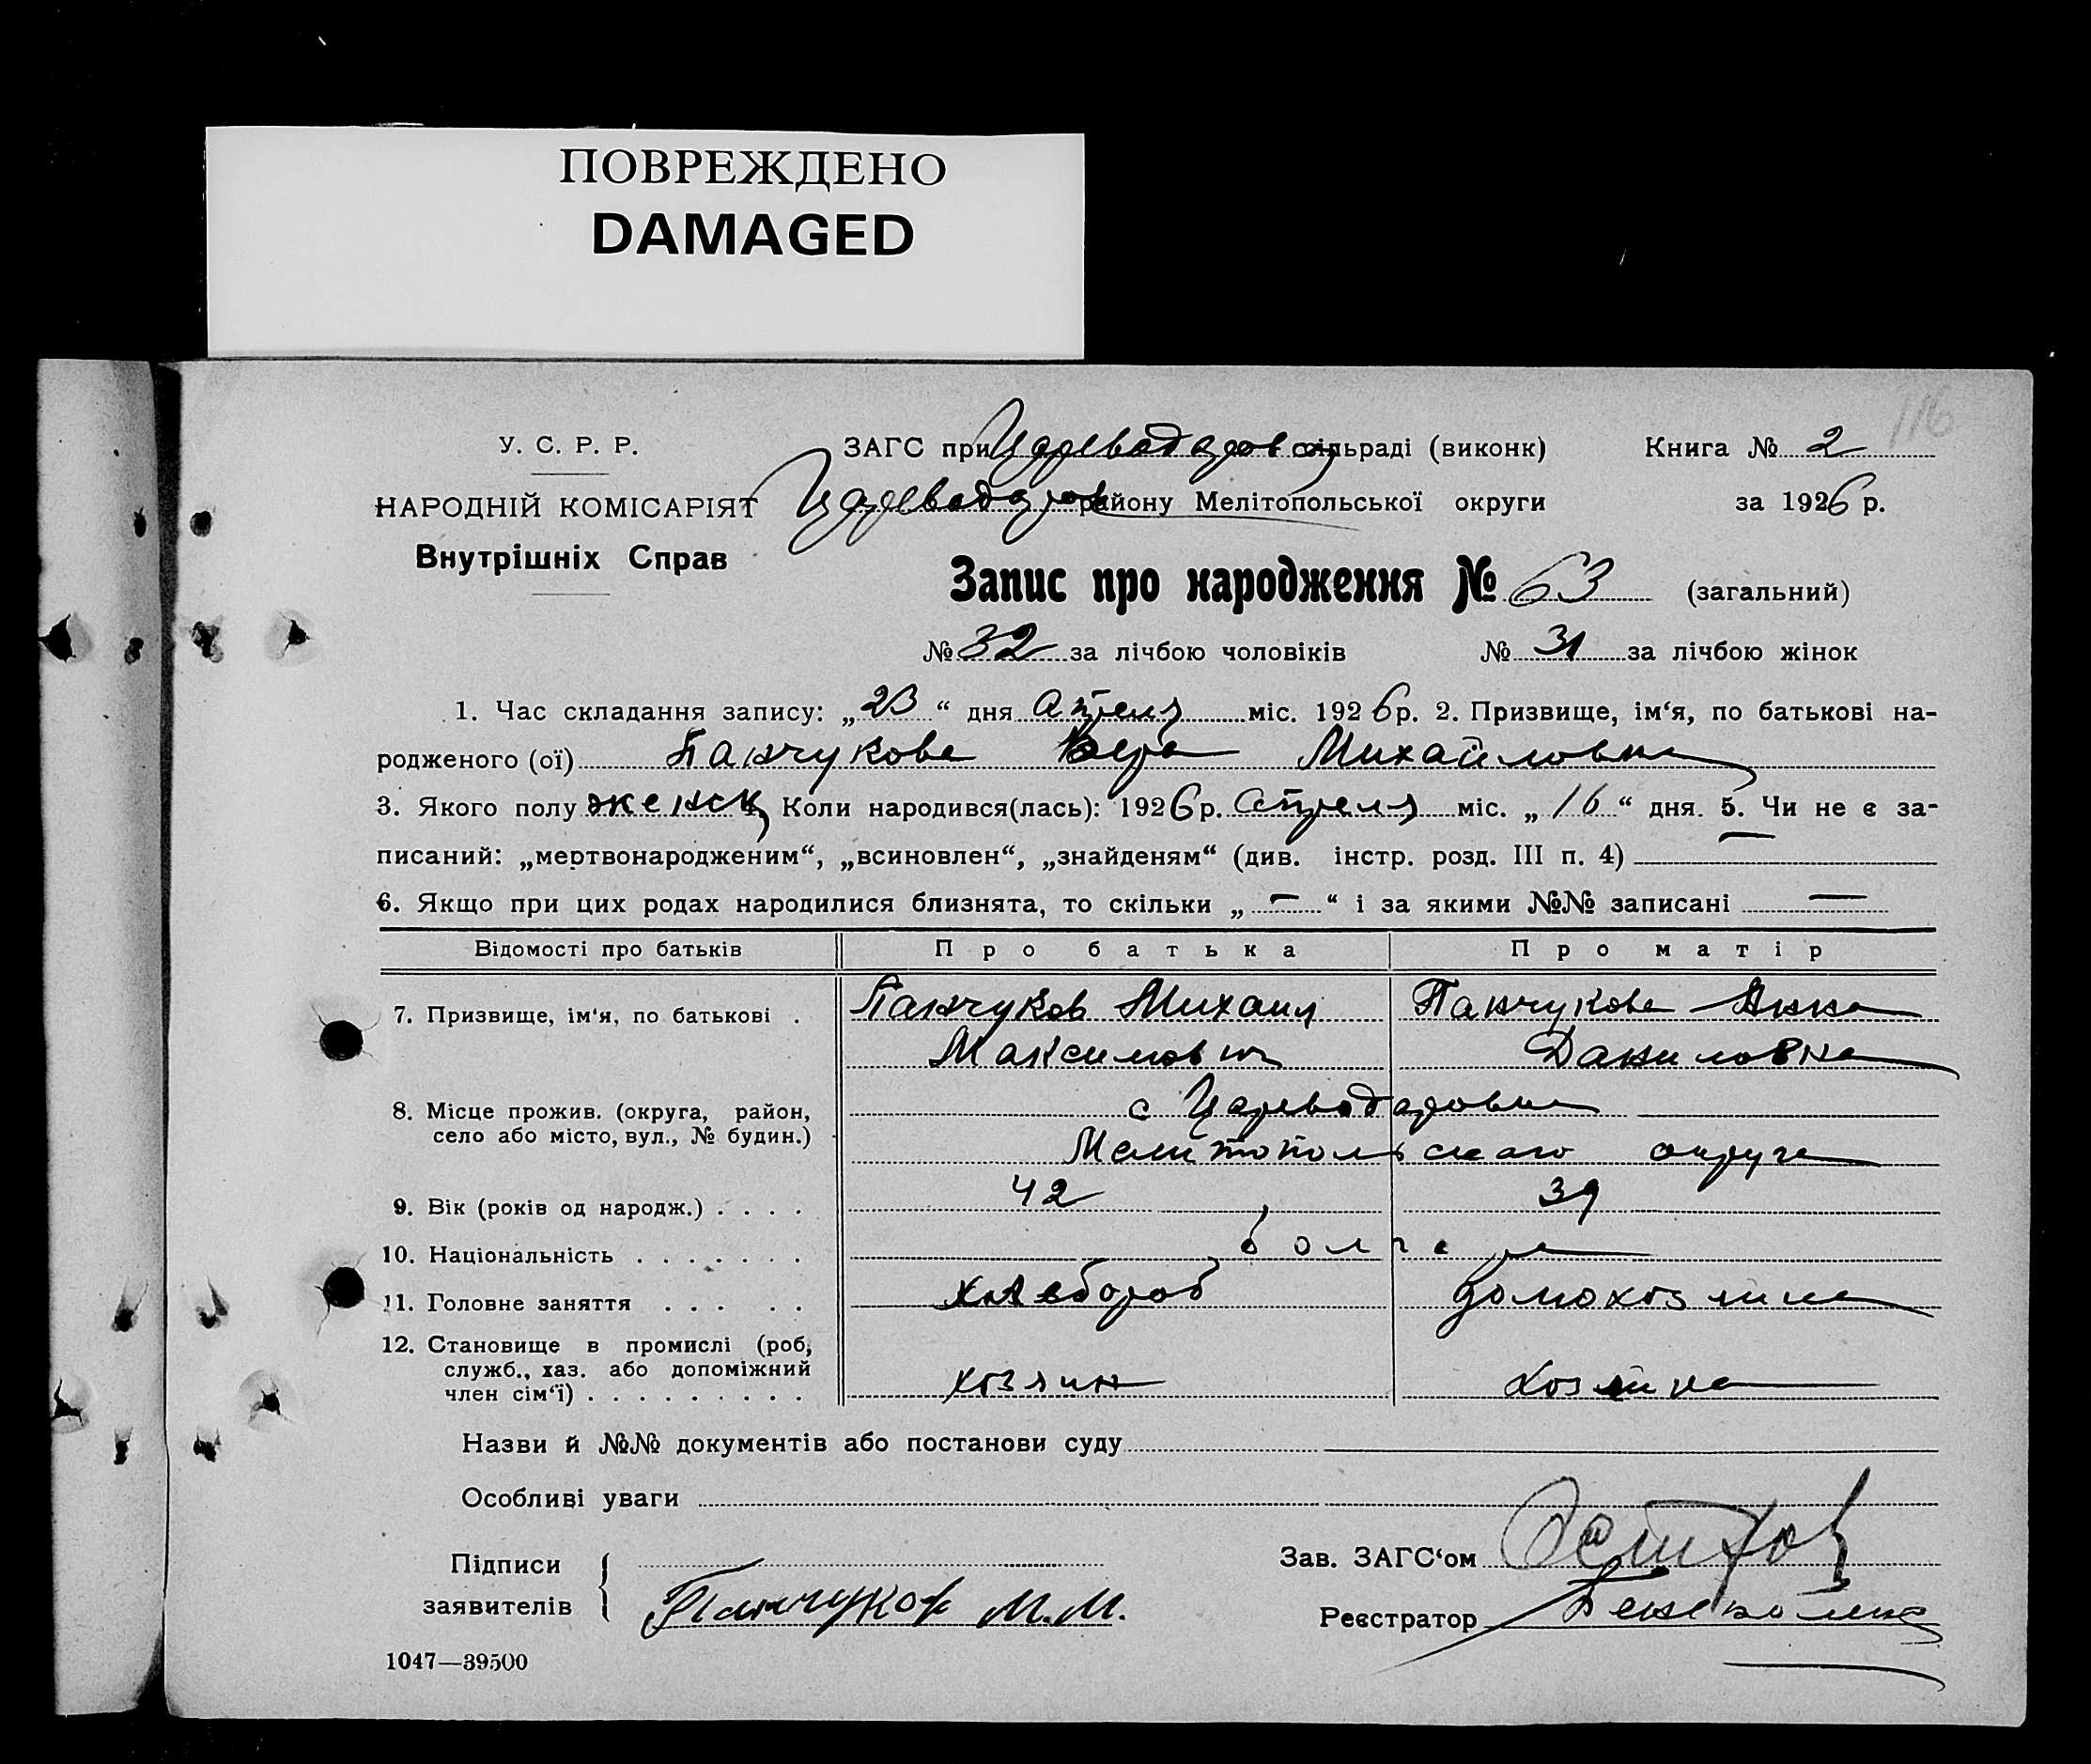 ПОВРЕЖДЕНО
DAMAGED
116
У. С. Р. Р.
НАРОДНІЙ КОМІСАРІЯТ
Внутрішніх Справ
ЗАГС при Царевод​аровск сільраді (виконк)
Цареводаров району Мелітопольської округи
Книга № 2
за 1926 р.
Запис про народження № 63 (загальний)
№ 32 за лічбою чоловіків № 31 за лічбою жінок
1. Час складання запису: „23“ дня апреля міс. 1926 р. 2. Призвище, ім‘я, по батькові на-
родженого (ої) Панчукова Вера Михайловна
3. Якого полу женск Коли народився(лась): 1926 р. апреля міс. „16“ дня. 5. Чи не є за-
писаний: „мертвонародженим“, „всиновлен“, „знайденям“ (див. інстр. розд. III п. 4) —
6. Якщо при цих родах народилися близнята, то скільки „—“ і за якими №№ записані —
Відомості про батьків Про батька Про матір
7. Призвище, ім‘я, по батькові . Панчуков Михаил Панчукова Анна
Максимович Даниловна
8. Місце прожив. (округа, район, с Цареводаровка
село або місто, вул., № будин.) Мелитопольского округа
9. Вік (років од народж.) . . . . 42 39
10. Національність . . . . . . . болгаре
11. Головне заняття . . . . . хлебороб домохозяика
12. Становище в промислі (роб,
служб., хаз. або допоміжний
член сім‘ї) . . . . . . . . . хозяин хозяика
Назви й №№ документів або постанови суду
Особливі уваги
Підписи
заявителів Панчуков М.М.
Зав. ЗАГС‘ом
Реєстратор
1047—39500